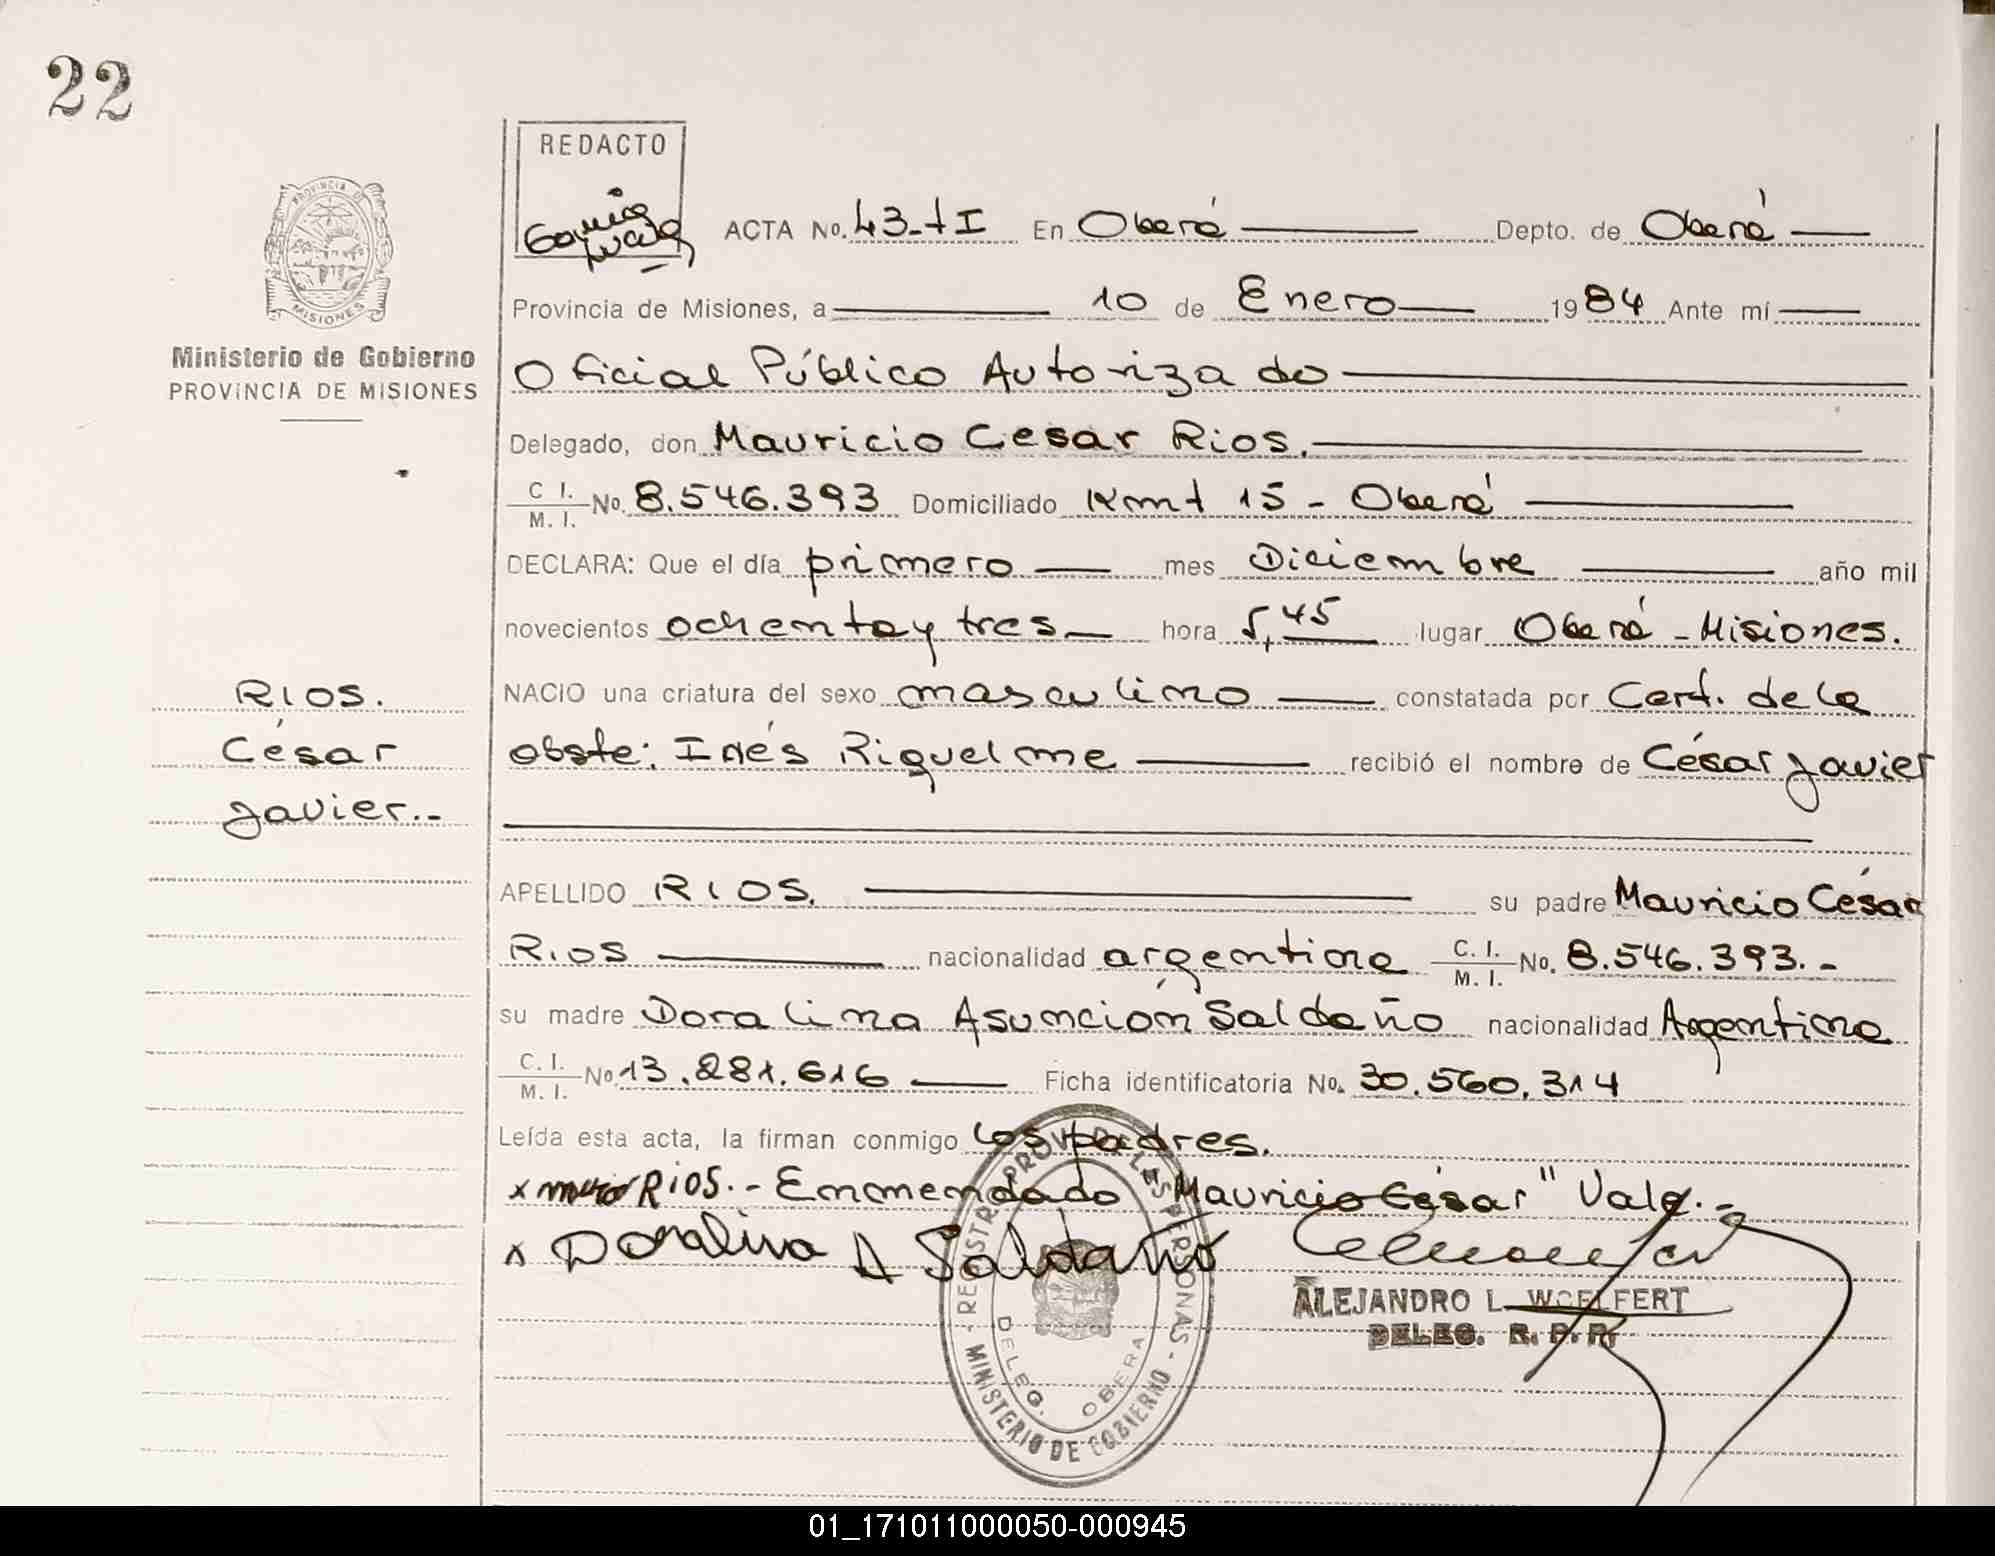 22
REDACTO
PROVINCIA DE
MISIONES
Ministerio de Gobierno
PROVINCIA DE MISIONES
ACTA No. 43-tI En Oberá Depto. de Oberá
Provincia de Misiones, a 10 de Enero 1984 Ante mí
Oficial Público Autorizado
Delegado, don Mauricio Cesar Rios.
C I. / M. I. No. 8.546.393 Domiciliado Kmt 15 - Oberá
DECLARA: Que el día primero mes Diciembre año mil
novecientos ochenta y tres hora 5,45 lugar Oberá - Misiones.
NACIO una criatura del sexo masculino constatada por Cert. de la
obste: Inés Riquelme recibió el nombre de César Javier
RIOS.
César
Javier.-
APELLIDO RIOS. su padre Mauricio César
Rios nacionalidad argentina C. I. / M. I. No. 8.546.393.-
su madre Doralina Asunción Saldaño nacionalidad Argentina
C. I. / M. I. No 13.281.616 Ficha identificatoria No. 30.560.314
Leída esta acta, la firman conmigo los padres.
x Rios.- Enmendado "Mauricio César" Vale.-
x Doralina A Saldaño
ALEJANDRO L. WOELFERT
DELEG. R. P. P.
REGISTRO PROV. DE LAS PERSONAS - MINISTERIO DE GOBIERNO -
DELEG. OBERA
01_171011000050-000945